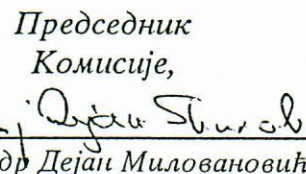 Председник
Комисије,
др Дејан Миловановић